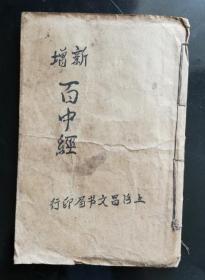 新增
百中經
上海昌文书局印行